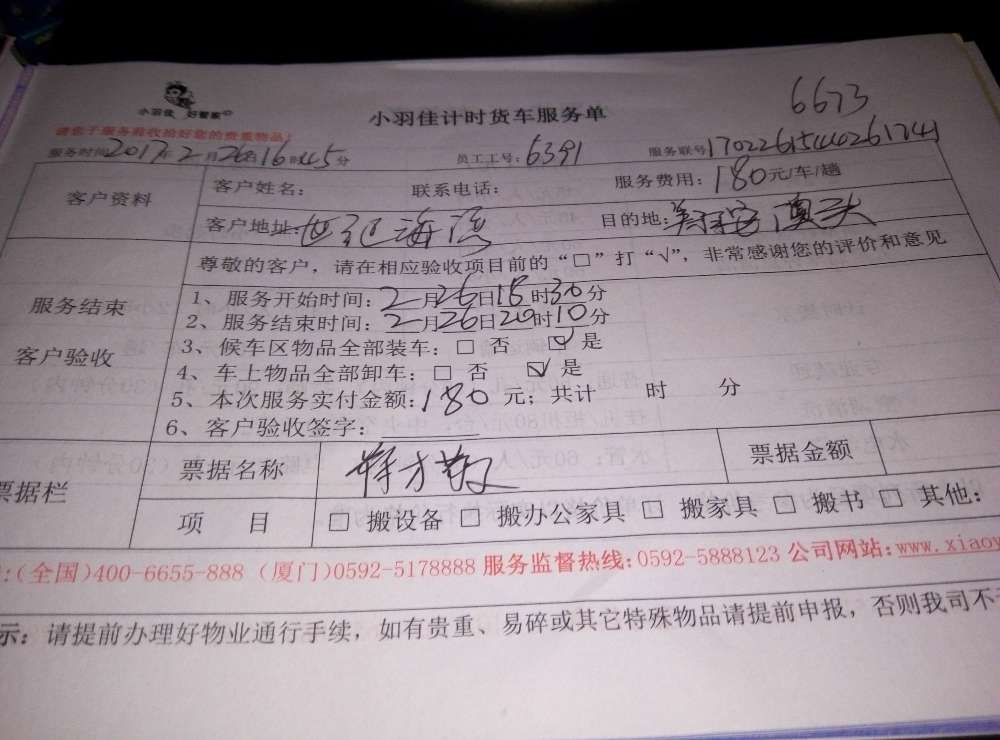 6673
小羽佳 好管家
小羽佳计时货车服务单
请您于服务前收拾好您的贵重物品!
服务时间2017年2月26日16时45分 员工工号:6391 服务联号:
客户资料 客户姓名: 联系电话: 服务费用:180元/车/趟
客户地址:世纪海湾 目的地: 澳头
服务结束 客户验收
尊敬的客户，请在相应验收项目前的“□”打“√”，非常感谢您的评价和意见
1、服务开始时间:2月26日18时30分
2、服务结束时间:2月26日20时10分
3、候车区物品全部装车:□ 否 ☑ 是
4、车上物品全部卸车:□ 否 ☑ 是
5、本次服务实付金额:180元;共计 时 分
6、客户验收签字:
票据栏 票据名称 票据金额
项 目 □ 搬设备 □ 搬办公家具 □ 搬家具 □ 搬书 □ 其他:
:(全国)400-6655-888 (厦门)0592-5178888 服务监督热线:0592-5888123 公司网站:www.xiaoy
示: 请提前办理好物业通行手续，如有贵重、易碎或其它特殊物品请提前申报，否则我司不